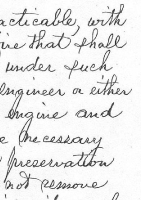 acticable, with
ire that shall
under such
engineer or either
engine and
e necessary
preservation
not remove